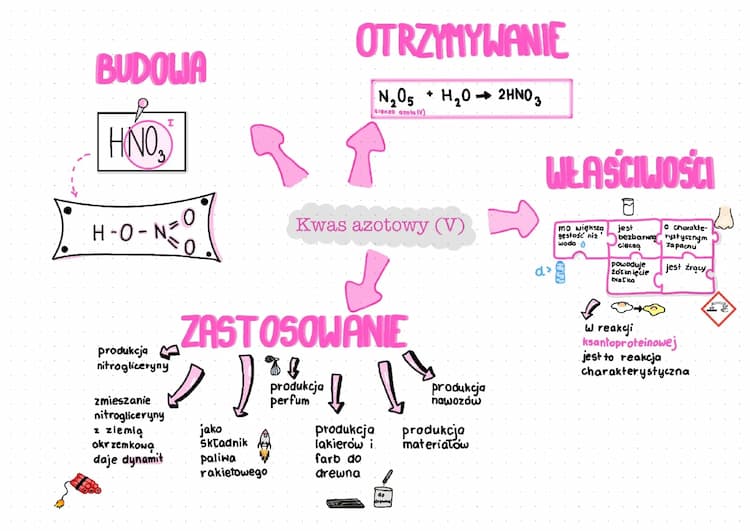 OTRZYMYWANIE
BUDOWA
N₂O₅ + H₂O → 2HNO₃
tlenek azotu(V)
HNO₃
I
H-O-N=O
=O
WŁAŚCIWOŚCI
Kwas azotowy (V)
ma większą
gęstość niż
woda
jest
bezbarwną
cieczą
o charakte-
rystycznym
zapachu
d>
powoduje
żółknięcie
białka
jest żrący
W reakcji
ksantoproteinowej
jest to reakcja
charakterystyczna
ZASTOSOWANIE
produkcja
nitrogliceryny
zmieszanie
nitrogliceryny
z ziemią
okrzemkową
daje dynamit
jako
składnik
paliwa
rakietowego
produkcja
perfum
produkcja
lakierów i
farb do
drewna
produkcja
materiałów
produkcja
nawozów